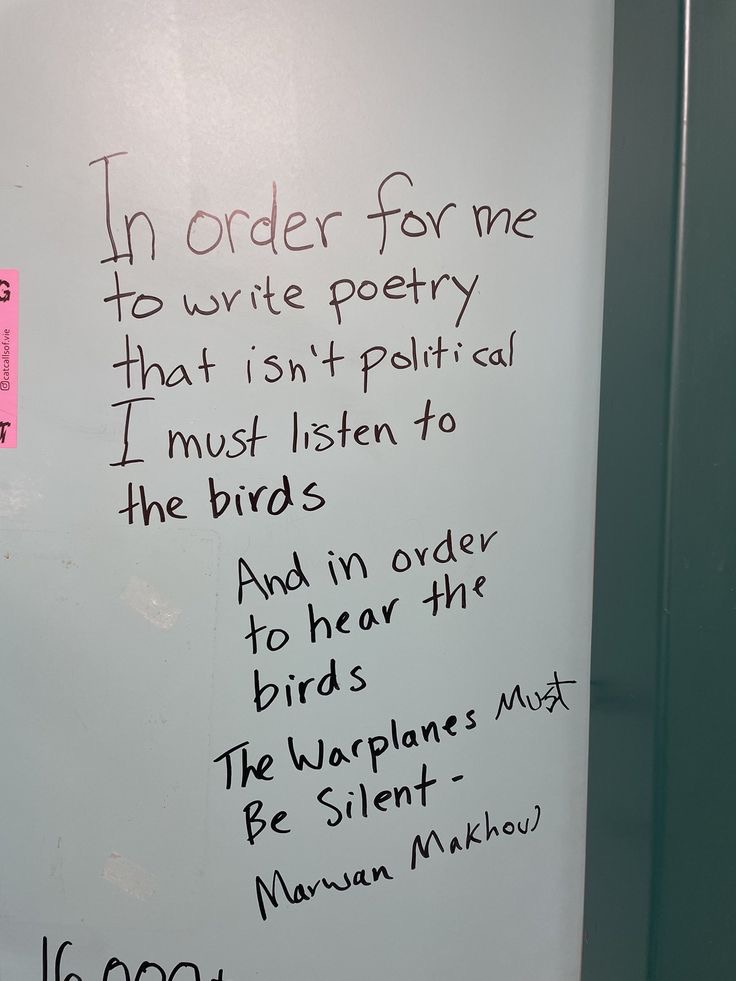 In order for me
to write poetry
that isn't political
I must listen to
the birds
And in order
to hear the
birds
The Warplanes Must
Be Silent -
Marwan Makhoul
G
@catcallsof.vie
T
16,000+